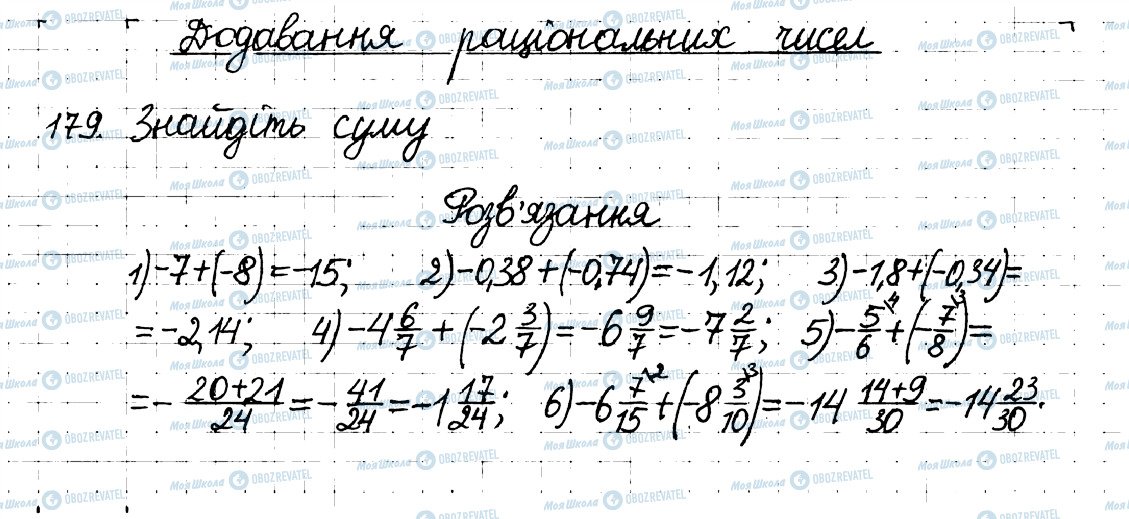 Додавання раціональних чисел
179. Знайдіть суму
Розв'язання
1) -7+(-8)=-15; 2) -0,38+(-0,74)=-1,12; 3) -1,8+(-0,34)=
=-2,14; 4) -4 6/7 + (-2 3/7) = -6 9/7 = -7 2/7; 5) -5/6 \4 + (-7/8 \3) =
= - (20+21)/24 = -41/24 = -1 17/24; 6) -6 7/15 \2 + (-8 3/10 \3) = -14 (14+9)/30 = -14 23/30.
МояШкола OBOZREVATEL